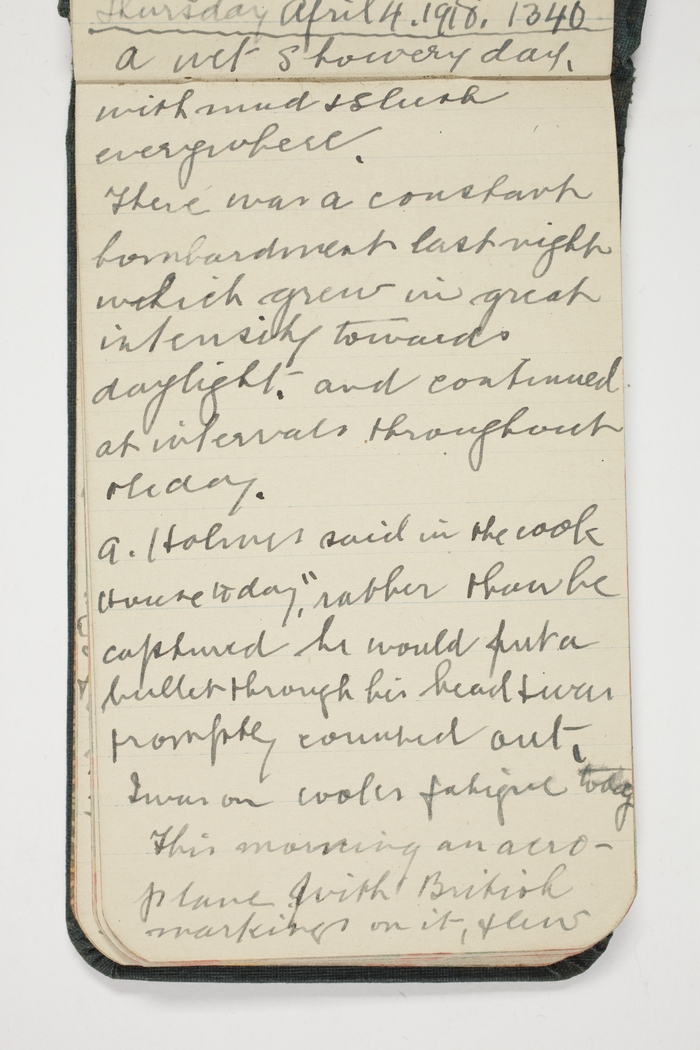 Thursday April 4. 1918. 1340
a wet showery day,
with mud & slush
everywhere.
There was a constant
bombardment last night
which grew in great
intensity towards
daylight, and continued
at intervals throughout
the day.
A. Holmes said in the cook
House today", rather than be
captured he would put a
bullet through his head & was
promptly counted out.
I was on cooks fatigue today
This morning an aero-
plane with British
markings on it, flew